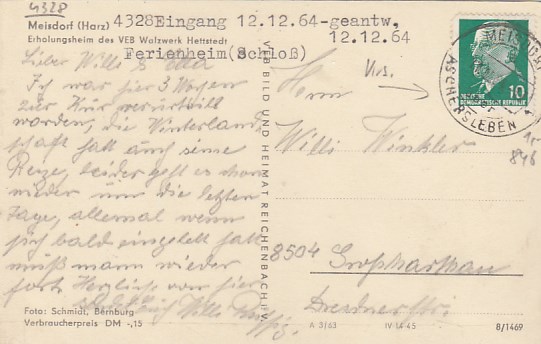 4328
Meisdorf (Harz)
4328Eingang 12.12.64-geantw,
12.12.64
Erholungsheim des VEB Walzwerk Hettstedt
Ferienheim(Schloß)
Lieber Willi &
Ich war hier 3 Wochen
zur Kur verurteilt
worden, die Winterland
schaft hatt auch seine
Reize, leider geht es schon
wieder um die letzten
Tage, allemal wenn
sich bald eingelebt hatt
muß mann wieder
fort. Herzliche von hier
Willi
VEB BILD UND HEIMAT REICHENBACH I. V.
Foto: Schmidt, Bernburg
Verbraucherpreis DM -,15
Vrs.
Herrn
Willi Winkler
8504
Dresdner Str.
MEISDORF
ASCHERSLEBEN
10
DEUTSCHE
DEMOKRATISCHE REPUBLIK
15
846
A 3/63
IV-14-45
8/1469